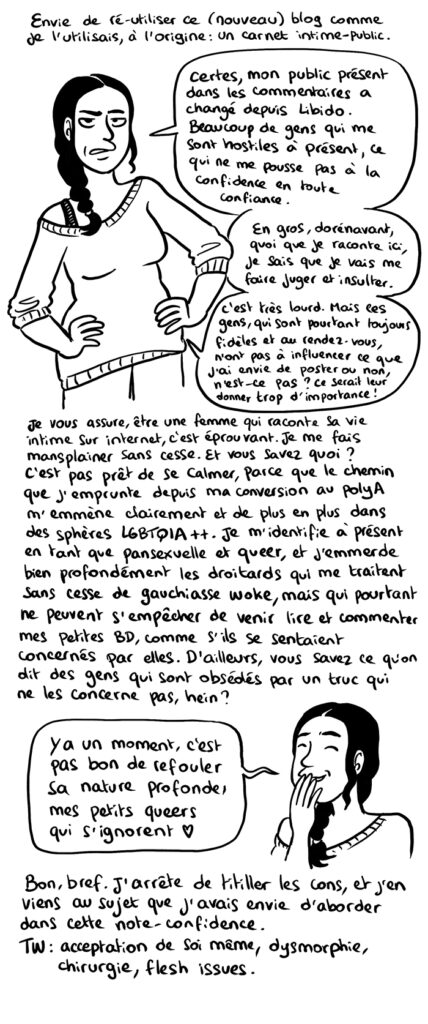 Envie de ré-utiliser ce (nouveau) blog comme
je l'utilisais, à l'origine : un carnet intime-public.
Certes, mon public présent
dans les commentaires a
changé depuis Libido.
Beaucoup de gens qui me
sont hostiles à présent, ce
qui ne me pousse pas à la
confidence en toute
confiance.
En gros, dorénavant,
quoi que je raconte ici,
je sais que je vais me
faire juger et insulter.
C'est très lourd. Mais ces
gens, qui sont pourtant toujours
fidèles et au rendez-vous,
n'ont pas à influencer ce que
j'ai envie de poster ou non,
n'est-ce pas ? Ce serait leur
donner trop d'importance !
Je vous assure, être une femme qui raconte sa vie
intime sur internet, c'est éprouvant. Je me fais
mansplainer sans cesse. Et vous savez quoi ?
C'est pas prêt de se calmer, parce que le chemin
que j'emprunte depuis ma conversion au polyA
m'emmène clairement et de plus en plus dans
des sphères LGBTQIA++. Je m'identifie à présent
en tant que pansexuelle et queer, et j'emmerde
bien profondément les droitards qui me traitent
sans cesse de gauchiasse woke, mais qui pourtant
ne peuvent s'empêcher de venir lire et commenter
mes petites BD, comme s'ils se sentaient
concernés par elles. D'ailleurs, vous savez ce qu'on
dit des gens qui sont obsédés par un truc qui
ne les concerne pas, hein ?
Ya un moment, c'est
pas bon de refouler
sa nature profonde,
mes petits queers
qui s'ignorent ♡
Bon, bref. J'arrête de titiller les cons, et j'en
viens au sujet que j'avais envie d'aborder
dans cette note-confidence.
TW : acceptation de soi même, dysmorphie,
chirurgie, flesh issues.